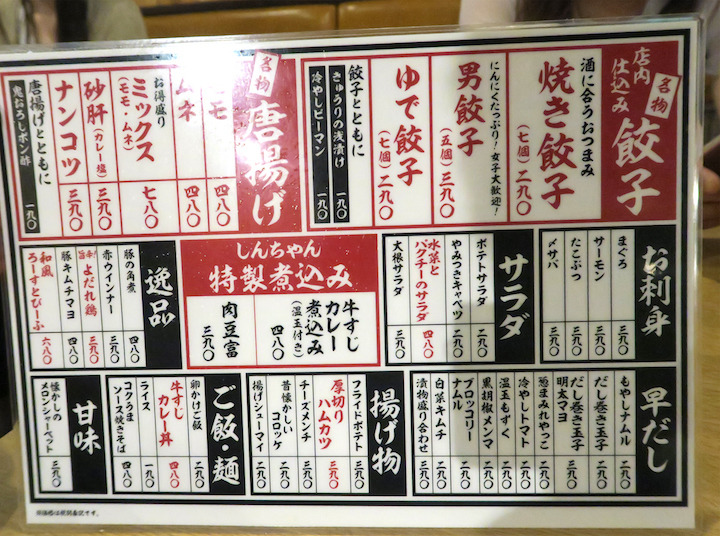 店内仕込み
名物
餃子
酒に合うおつまみ
焼き餃子
(七個) 二九〇
にんにくたっぷり！女子大歓迎！
男餃子
(五個) 三九〇
ゆで餃子
(七個) 二九〇
餃子とともに
きゅうりの浅漬け 一九〇
冷やしピーマン 一九〇
名物
唐揚げ
モモ 四八〇
ムネ 四八〇
お得盛り
ミックス
(モモ・ムネ) 七八〇
砂肝
(カレー塩) 三九〇
ナンコツ 三九〇
唐揚げとともに
鬼おろしポン酢 一九〇
お刺身
まぐろ 三九〇
サーモン 三九〇
たこぶつ 三九〇
〆サバ 三九〇
サラダ
ポテトサラダ 二九〇
やみつきキャベツ 二九〇
水菜と
パクチーのサラダ 四八〇
大根サラダ 三九〇
しんちゃん
特製煮込み
牛すじ
カレー
煮込み
(温玉付き) 四八〇
肉豆富 三九〇
逸品
豚の角煮 四八〇
赤ウインナー 三九〇
旨辛！
よだれ鶏 三九〇
豚キムチマヨ 四八〇
和風
ろーすとびーふ 六八〇
早だし
もやしナムル 二九〇
だし巻き玉子 三九〇
だし巻き玉子
明太マヨ 三九〇
葱まみれやっこ 二九〇
冷やしトマト 二九〇
温玉もずく 二九〇
黒胡椒メンマ 二九〇
ブロッコリー
ナムル 二九〇
白菜キムチ 二九〇
漬物盛り合わせ 三九〇
揚げ物
フライドポテト 三九〇
厚切り
ハムカツ 三九〇
チーズメンチ 三九〇
昔懐かしい
コロッケ 二九〇
揚げシューマイ 二九〇
ご飯・麺
卵かけご飯 二九〇
牛すじ
カレー丼 四八〇
ライス 一九〇
コクうま
ソース焼きそば 四八〇
甘味
懐かしの
メロンシャーベット 三九〇
※価格は税別表記です。